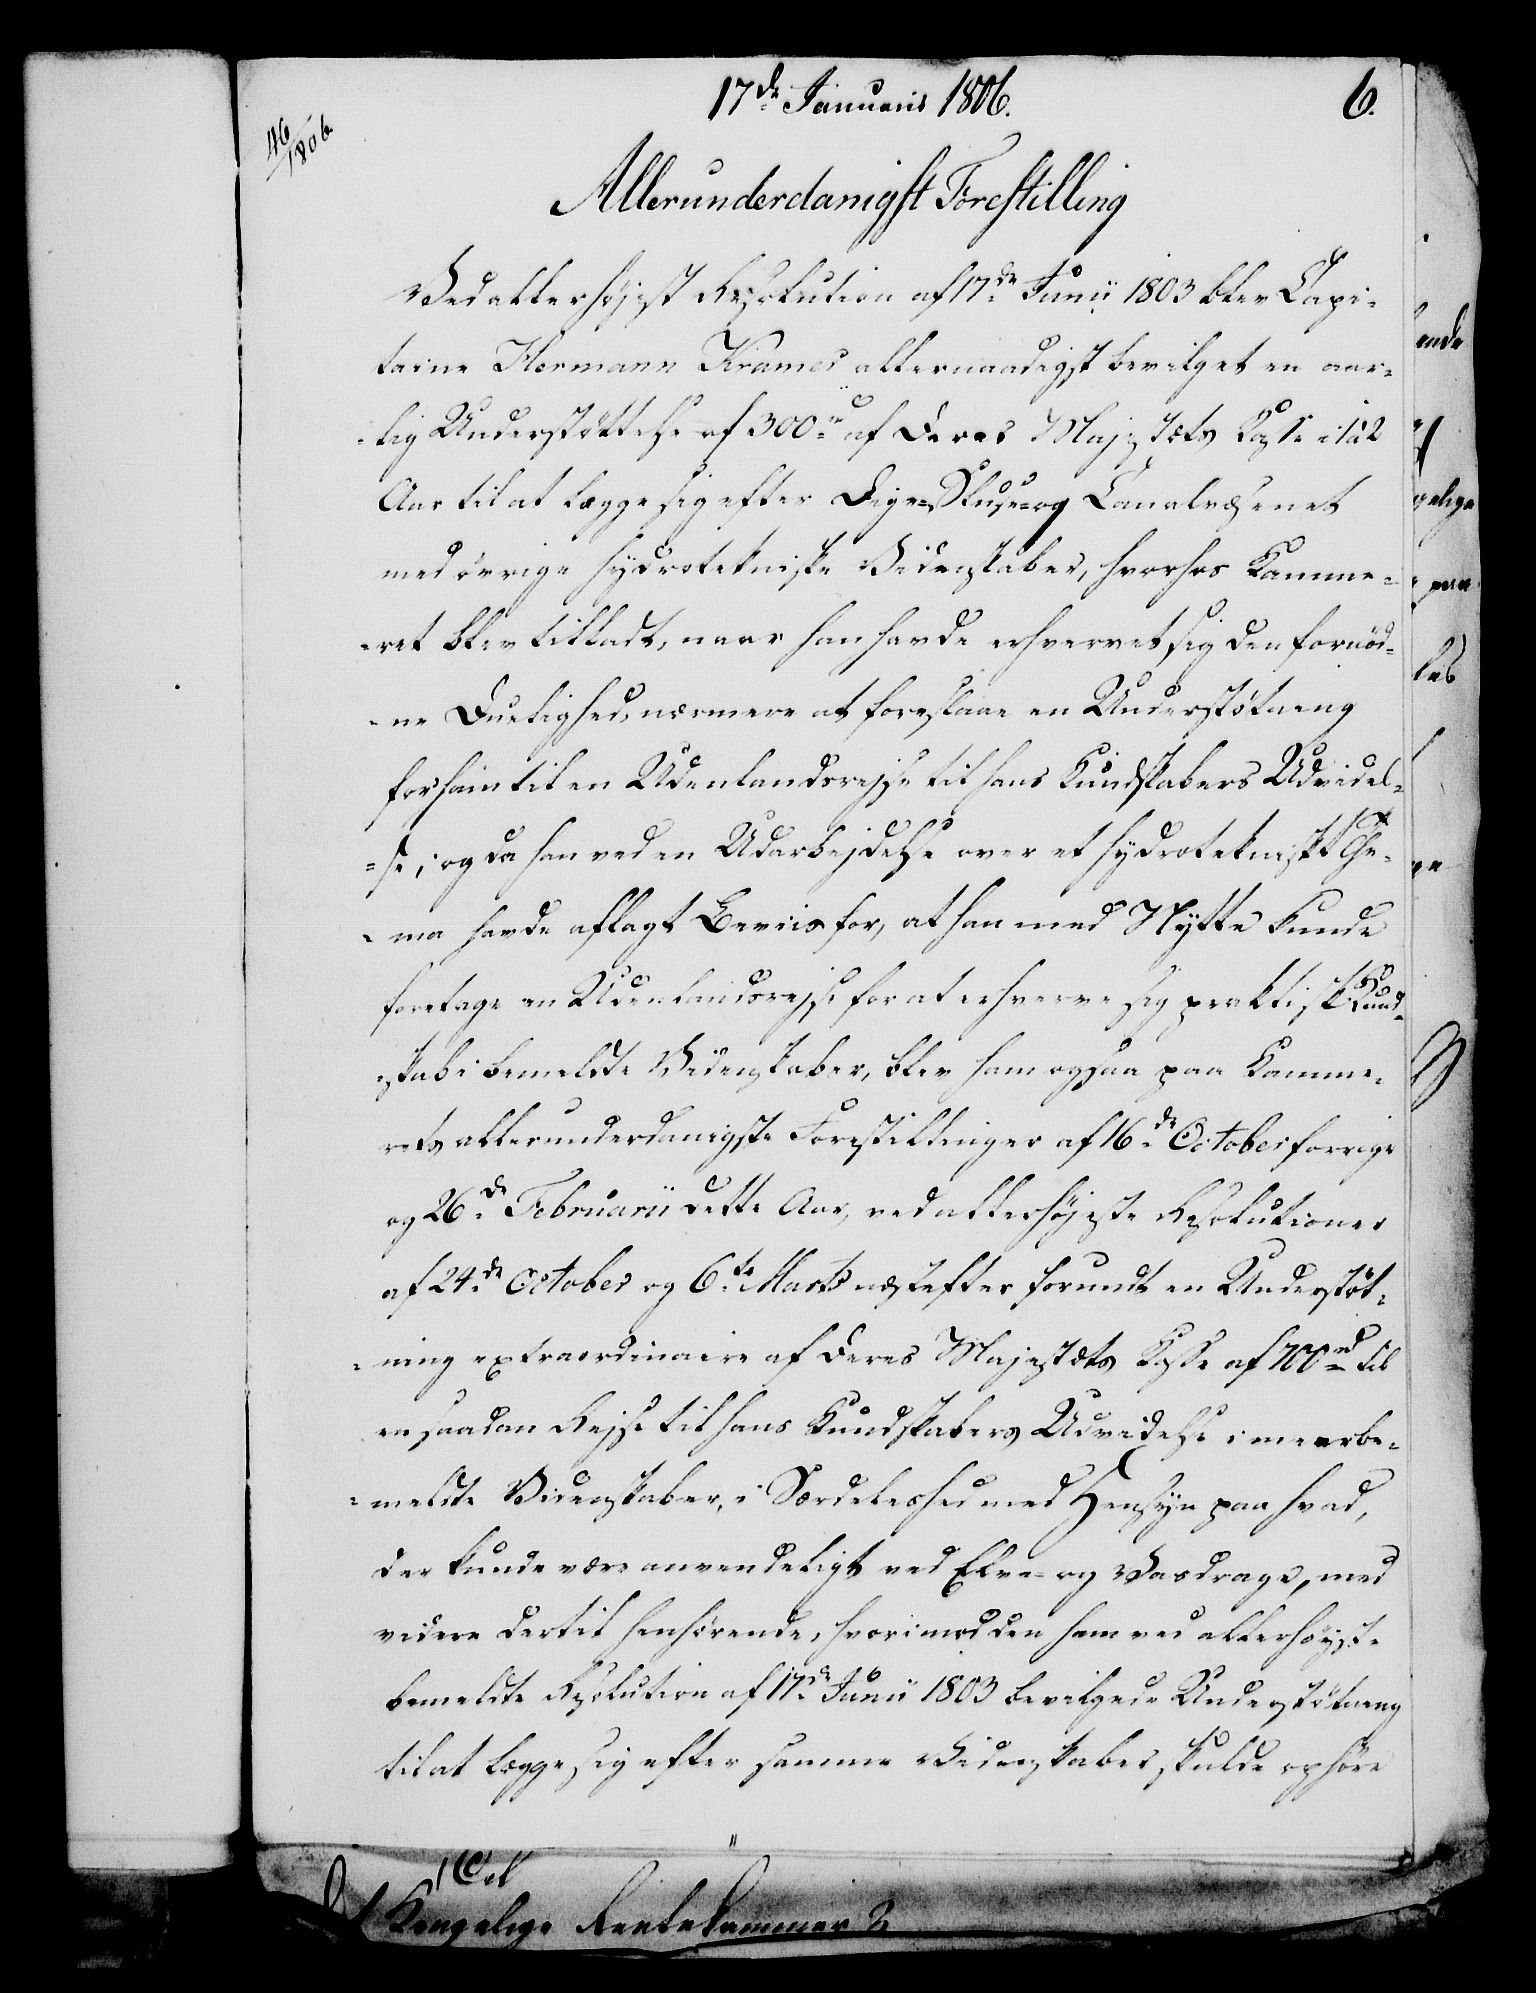 17de Januarii 1806.
6.
46/1806
Allerunderdanigst Forestilling
Ved allerhøjest Resolution af 17de Junii 1803 blev Capi-
taine Hermann Kramer allernaadigst bevilget en aar-
-lig Understøttelse af 300 af Deres Majestæts Kasse i 1 à 2
Aar til at lægge sig efter Dige- Sluse- og Canalvæsenet
med övrige hydrotekniske Videnskaber, hvorhos Kamme-
-ret blev tilladt, naar han havde erhvervet sig den fornöd-
-ne Duelighed, nærmere at foreslaae en Understøtneng
for ham til en Udenlandsrejse til hans Kundskabers Udvidel-
-se, og da han ved en Udarbejdelse over et hydroteknisk The-
-ma havde aflagt Beviis for, at han med Nytte kunde
foretage en Udenlandsrejse for at erhverve sig praktisk Kund-
-skab i bemeldte Videnskaber, blev ham ogsaa paa Kamme-
rets allerunderdanigste Forestillinger af 16de October forrige
og 26de Februarii dette Aar, ved allerhøjeste Resolutioner
af 24de October og 6te Marts næstefter forundt en Understøt-
-ning extraordinaire af Deres Majestæts Kasse af 700 rd til
en saadan Rejse til hans Kundskabers Udvidelse i meerbe-
-meldte Videnskaber, i Særdeleshed med Hensyn paa hvad,
der kunde være anvendeligt ved Elve- og Vasdrage, med
videre dertil henhørende, hvorimod den ham ved allerhöyst-
bemeldte Resolution af 17de Junii 1803 bevilgede Understøtneng
til at lægge sig efter samme Videnskaber skulde ophöre
Til Det
Kongelige Rentekammer